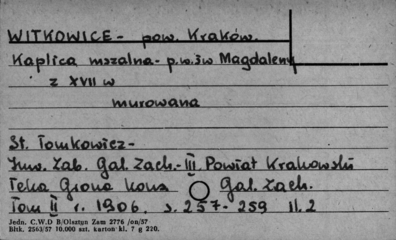 WITKOWICE - pow. Kraków.
Kaplica mszalna - p.w. św Magdaleny
z XVII w
murowana
St. Tomkowicz -
Inw. Zab. Gal. Zach. - III. Powiat Krakowski
Teka Grona Kons Gal. Zach.
Tom II r. 1906 s. 257 - 259 il. 2
Jedn. C.W.D B/Olsztyn Zam 2776 /on/57
Bltk. 2563/57 10.000 szt. karton kl. 7 g 220.